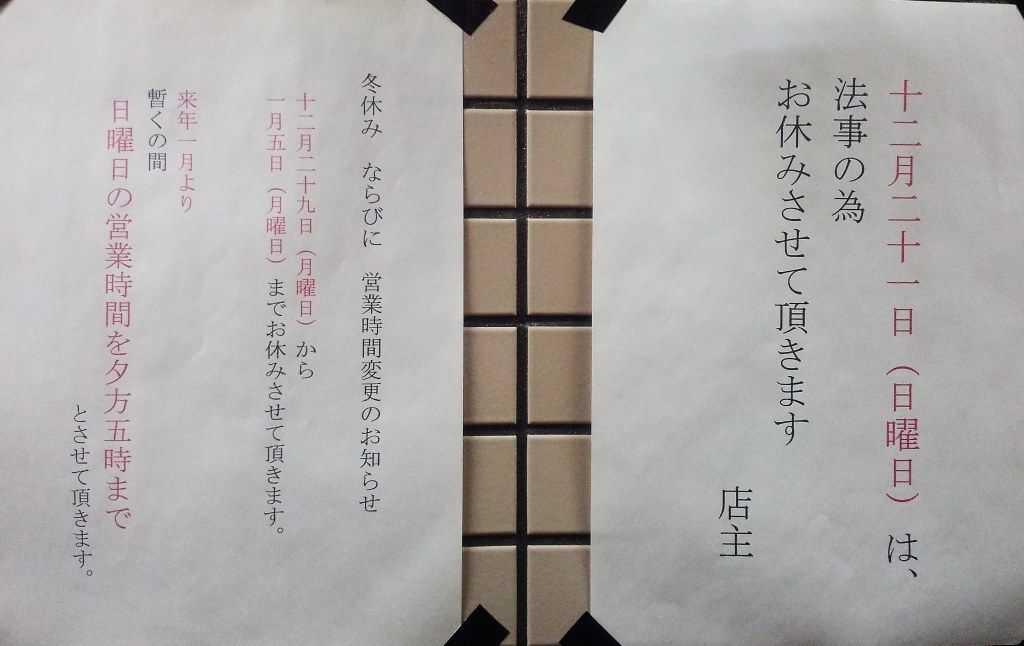 十二月二十一日（日曜日）は、
法事の為
お休みさせて頂きます
店主
冬休み　ならびに　営業時間変更のお知らせ
十二月二十九日（月曜日）から
一月五日（月曜日）までお休みさせて頂きます。
来年一月より
暫くの間
日曜日の営業時間を夕方五時まで
とさせて頂きます。